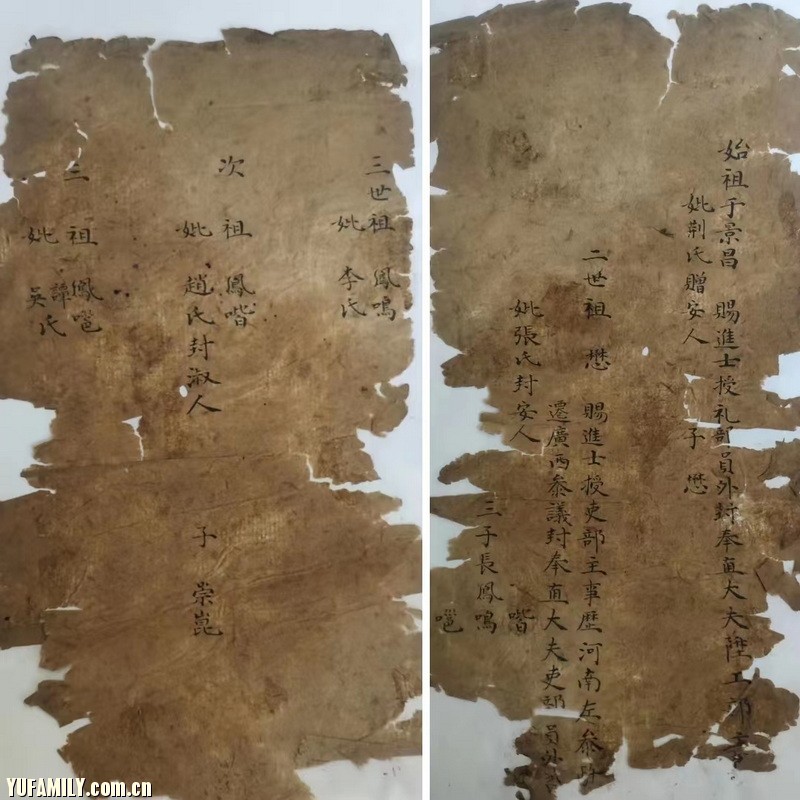 始祖于景昌 賜進士授礼部員外封奉直大夫陞工部
妣荆氏贈安人 子懋
二世祖 懋 賜進士授吏部主事歷河南左參
遷廣西參議封奉直大夫吏部員外
妣張氏封安人
三子長鳳鳴
喈
嗈
三世祖 鳳鳴
妣 李氏
次祖 鳳喈
妣 趙氏封淑人
子 崇崑
三祖 諱鳳嗈
妣 吳氏
YUFAMILY.com.cn